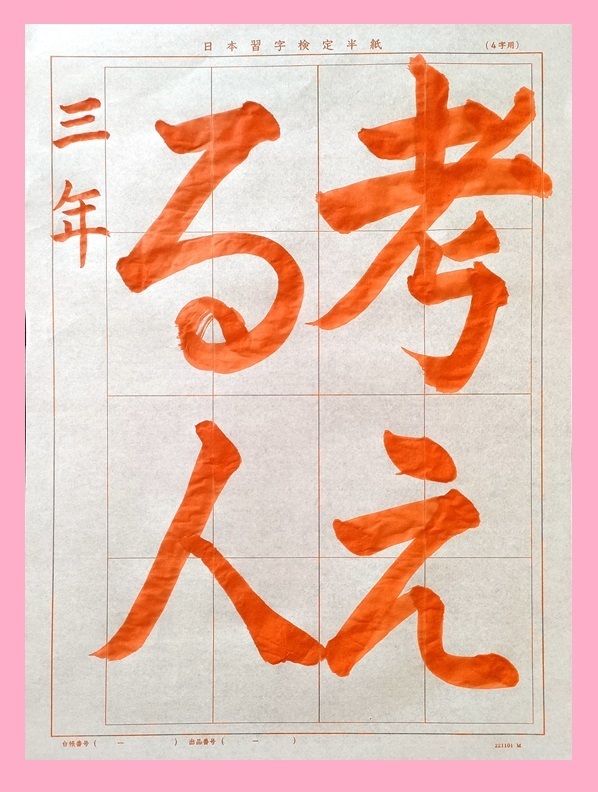 日本習字検定半紙
(4字用)
考え
る人
三年
台帳番号( ー ) 出品番号( ー )
221101 M